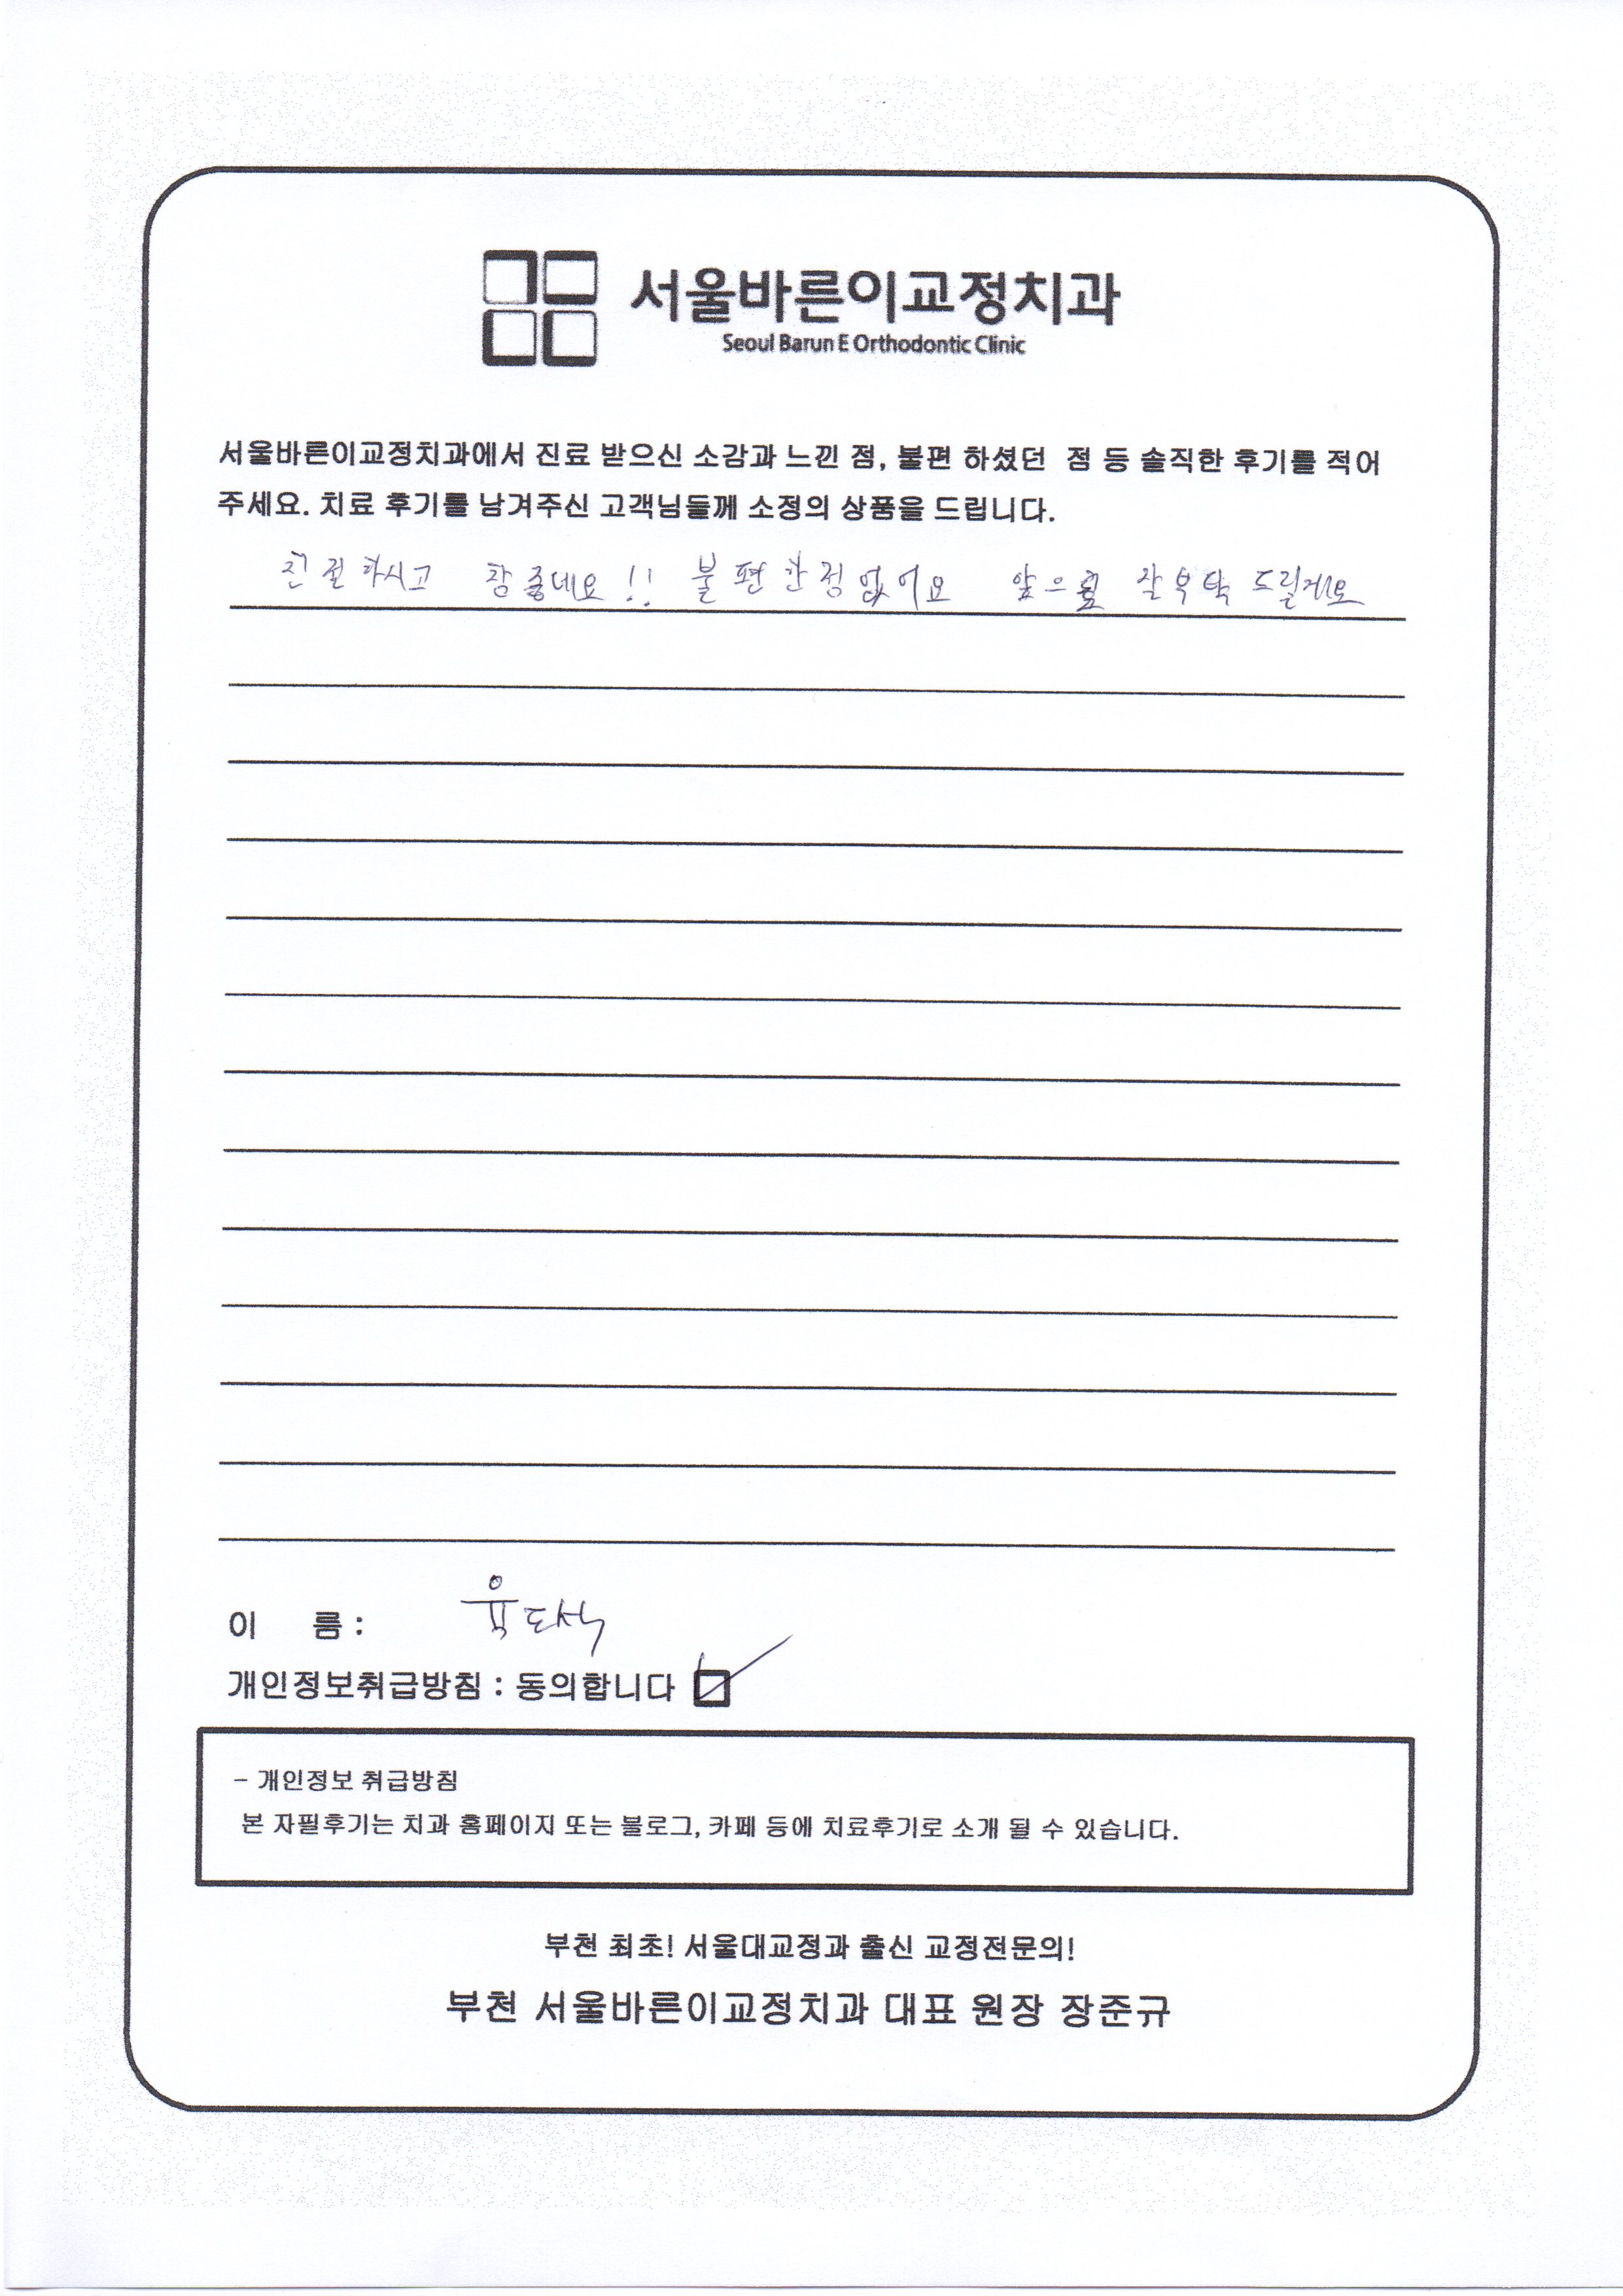 서울바른이교정치과
Seoul Barun E Orthodontic Clinic
서울바른이교정치과에서 진료 받으신 소감과 느낀 점, 불편 하셨던 점 등 솔직한 후기를 적어
주세요. 치료 후기를 남겨주신 고객님들께 소정의 상품을 드립니다.
친절하시고 참좋네요!! 불편한점없어요 앞으로 잘부탁드릴게요
이 름 :
개인정보취급방침 : 동의합니다
- 개인정보 취급방침
본 자필후기는 치과 홈페이지 또는 블로그, 카페 등에 치료후기로 소개 될 수 있습니다.
부천 최초! 서울대교정과 출신 교정전문의!
부천 서울바른이교정치과 대표 원장 장준규